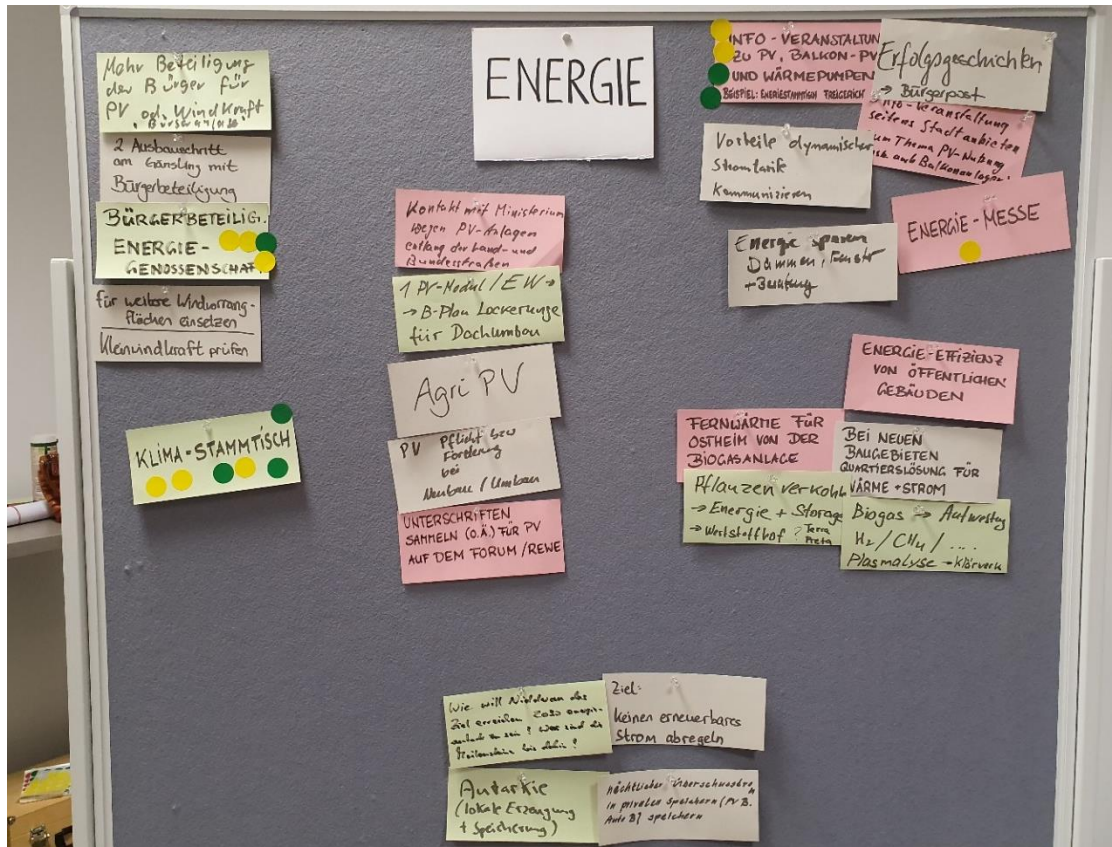 ENERGIE
Mehr Beteiligung
der Bürger für
PV, od. Windkraft
2 Ausbauschritt
am Gänsling mit
Bürgerbeteiligung
BÜRGERBETEILIG.
ENERGIE-
GENOSSENSCHAFT
für weitere Windvorrang-
flächen einsetzen
Kleinwindkraft prüfen
KLIMA-STAMMTISCH
Kontakt mit Ministerium
wegen PV-Anlagen
entlang der Land- und
Bundesstraßen
1 PV-Modul / EW →
→ B-Plan Lockerunge
für Dachumbau
Agri PV
PV Pflicht bzw
Förderung
bei
Neubau / Umbau
UNTERSCHRIFTEN
SAMMELN (O.Ä.) FÜR PV
AUF DEM FORUM / REWE
INFO-VERANSTALTUN
ZU PV, BALKON-PV
UND WÄRMEPUMPEN
BEISPIEL: ENERGIESTAMMTISCH FREIGERICH
Erfolgsgeschichten
→ Bürgerpost
Info-Veranstaltung
seitens Stadt anbieten
zum Thema PV-Nutzung
Balkonanlagen
Vorteile dynamischer
Stromtarife
kommunizieren
ENERGIE-MESSE
Energie sparen
Dämmen, Fenster
+ Beratung
ENERGIE-EFFIZIENZ
VON ÖFFENTLICHEN
GEBÄUDEN
FERNWÄRME FÜR
OSTHEIM VON DER
BIOGASANLAGE
BEI NEUEN
BAUGEBIETEN
QUARTIERSLÖSUNG FÜR
WÄRME + STROM
Pflanzen verkohl
→ Energie + Storage
→ Wertstoffhof ? Terra
Preta
Biogas → Aufwertung
H2 / CH4 / ....
Plasmalyse → Klärwerk
Wie will Nidderau das
Ziel erreichen 2030
zu sein? Was sind die
Meilensteine bis dahin?
Ziel:
keinen erneuerbares
Strom abregeln
Autarkie
(lokale Erzeugung
+ Speicherung)
nächtlicher Überschussstrom
in privaten Speichern (PV B.
Auto B) speichern